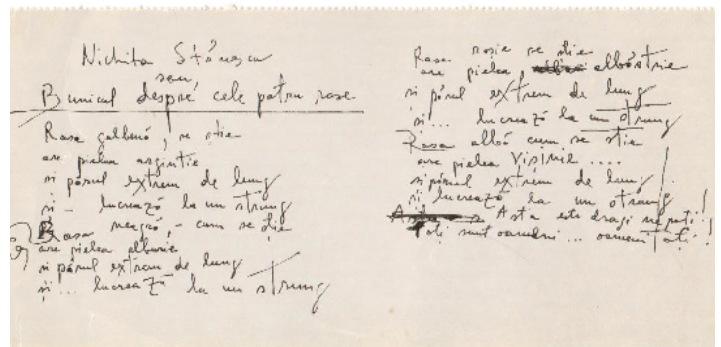 Nichita Stănescu
sau
Bunicul despre cele patru rase
Rasa galbenă, se știe
are pielea argintie
și părul extrem de lung
și - lucrează la un strung
Rasa neagră, - cum se știe
are pielea alburie
și părul extrem de lung
și... lucrează la un strung
Rasa roșie se știe
are pielea, albăstrie
și părul extrem de lung
și... lucrează la un strung
Rasa albă cum se știe
are pielea vișinie ....
și părul extrem de lung
și lucrează la un strung!
Asta este dragi nepoți!
Toți sunt oameni... oameni toți!